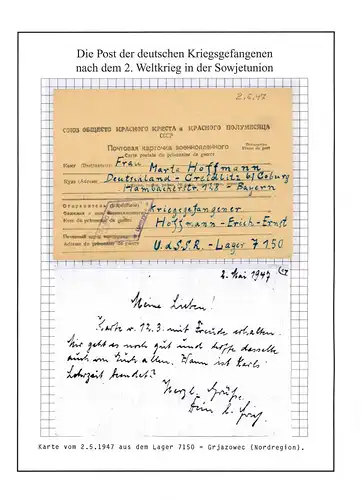 Die Post der deutschen Kriegsgefangenen
nach dem 2. Weltkrieg in der Sowjetunion
2.5.47
СОЮЗ ОБЩЕСТВ КРАСНОГО КРЕСТА и КРАСНОГО ПОЛУМЕСЯЦА
СССР
Почтовая карточка военнопленного
Carte postale du prisonnier de guerre
Franc de port
Кому (Destinataire) Frau Marta Hoffmann
Куда (Adresse) Deutschland - Creidlitz b/ Coburg
Hambacherstr 148 - Bayern
Отправитель (Expéditeur)
Фамилия и имя военнопленного Kriegsgefangener
Nom du prisonnier de guerre Hoffmann - Erich - Ernst
Почтовый адрес военнопленного
Adresse du prisonnier de guerre U.d.S.S.R. - Lager 7150
2. Mai 1947
Meine Lieben!
Karte v. 12.3. mit Freude erhalten.
Mir geht es noch gut und hoffe dasselbe
auch von Euch allen. Wann ist Karls
Lehrzeit beendet?
Herzl. Grüße
Karte vom 2.5.1947 aus dem Lager 7150 = Grjazowec (Nordregion).